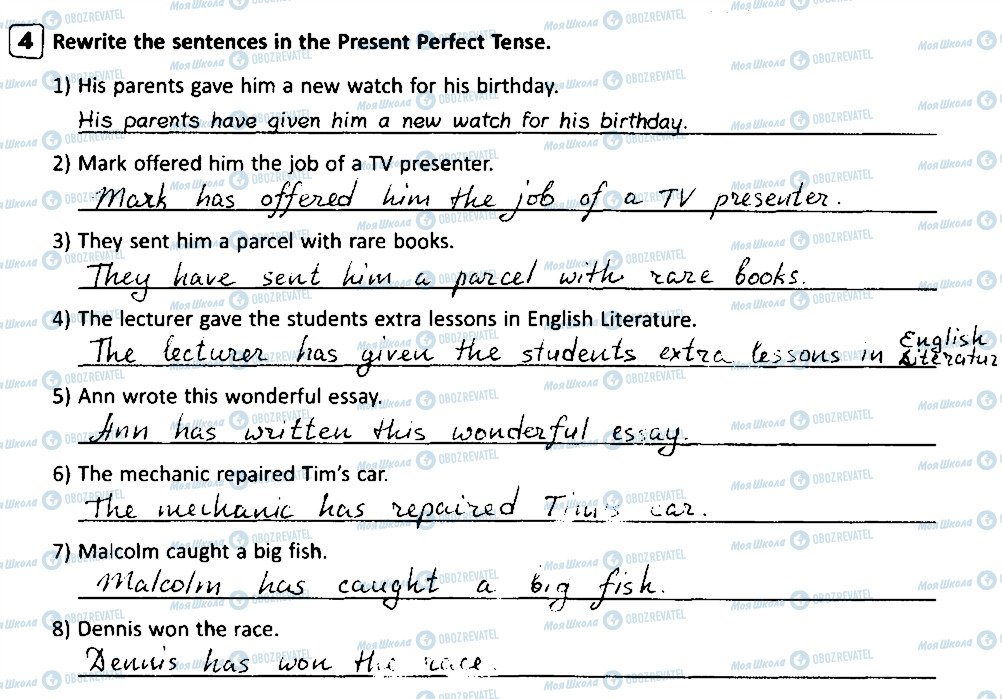 4 Rewrite the sentences in the Present Perfect Tense.
1) His parents gave him a new watch for his birthday.
His parents have given him a new watch for his birthday.
2) Mark offered him the job of a TV presenter.
Mark has offered him the job of a TV presenter.
3) They sent him a parcel with rare books.
They have sent him a parcel with rare books.
4) The lecturer gave the students extra lessons in English Literature.
The lecturer has given the students extra lessons in English Literatur
5) Ann wrote this wonderful essay.
Ann has written this wonderful essay.
6) The mechanic repaired Tim's car.
The mechanic has repaired Tim's car.
7) Malcolm caught a big fish.
Malcolm has caught a big fish.
8) Dennis won the race.
Dennis has won the race.
МояШкола OBOZREVATEL